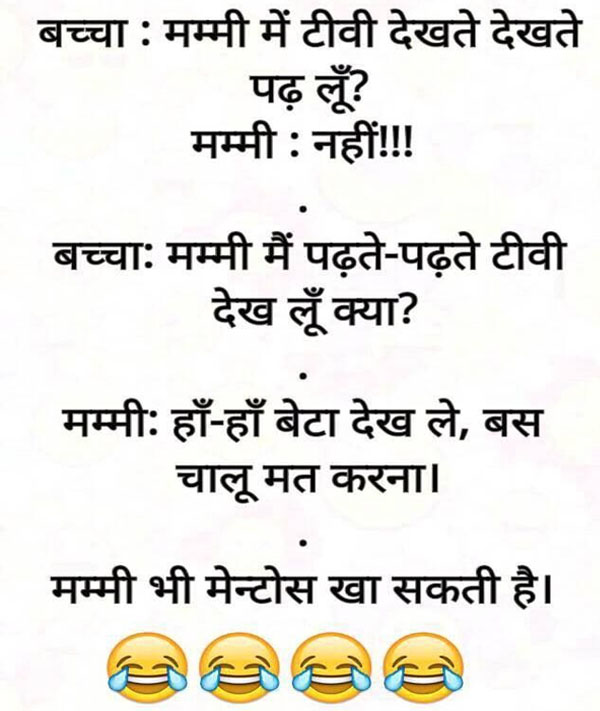 बच्चा : मम्मी में टीवी देखते देखते
पढ़ लूँ?
मम्मी : नहीं!!!
.
बच्चा: मम्मी मैं पढ़ते-पढ़ते टीवी
देख लूँ क्या?
.
मम्मी: हाँ-हाँ बेटा देख ले, बस
चालू मत करना।
.
मम्मी भी मेन्टोस खा सकती है।
😂😂😂😂